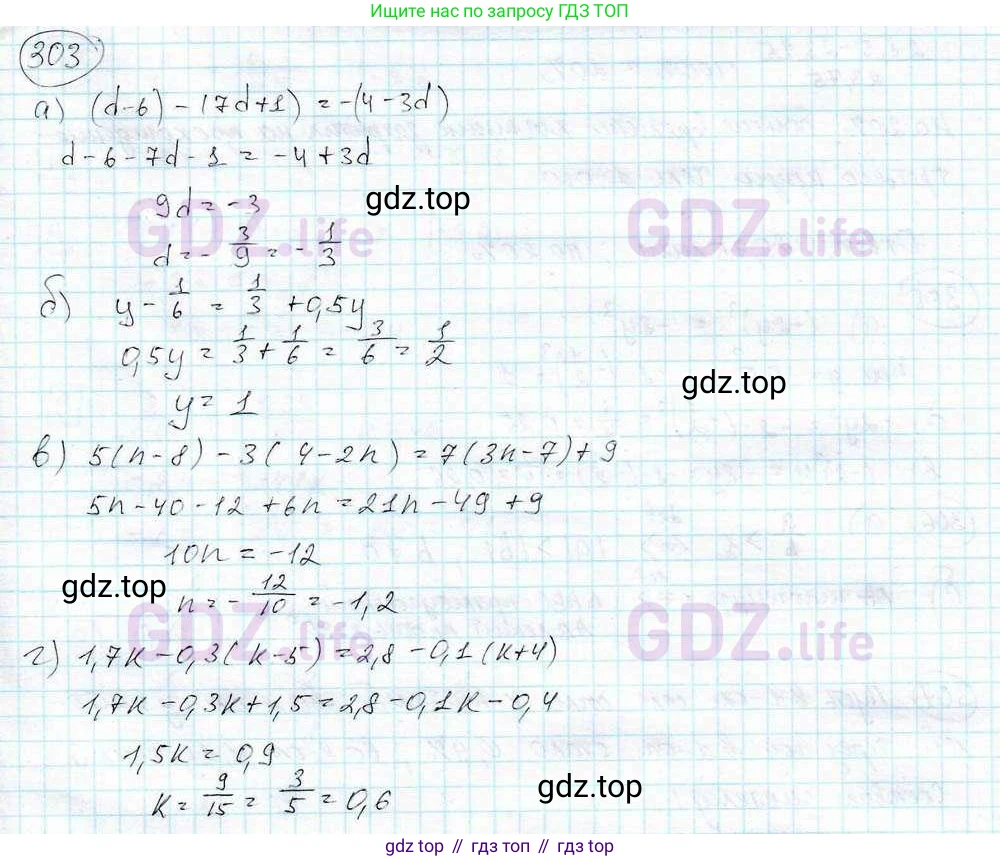 Ищите нас по запросу ГДЗ ТОП
303
а) (d-6) - (7d+1) = -(4-3d)
d-6-7d-1 = -4+3d
9d = -3
gdz.top
GDZ.life GDZ.life
d = -3/9 = -1/3
б) y - 1/6 = 1/3 + 0,5y
0,5y = 1/3 + 1/6 = 3/6 = 1/2
gdz.top
y = 1
в) 5(n-8) - 3(4-2n) = 7(3n-7)+9
5n-40-12+6n = 21n-49+9
10n = -12
gdz.top
n = -12/10 = -1,2
GDZ.life GDZ.life
г) 1,7k-0,3(k-5) = 2,8-0,1(k+4)
1,7k-0,3k+1,5 = 2,8-0,1k-0,4
1,5k = 0,9
k = 9/15 = 3/5 = 0,6
gdz.top
gdz top // гдз топ // гдз.топ